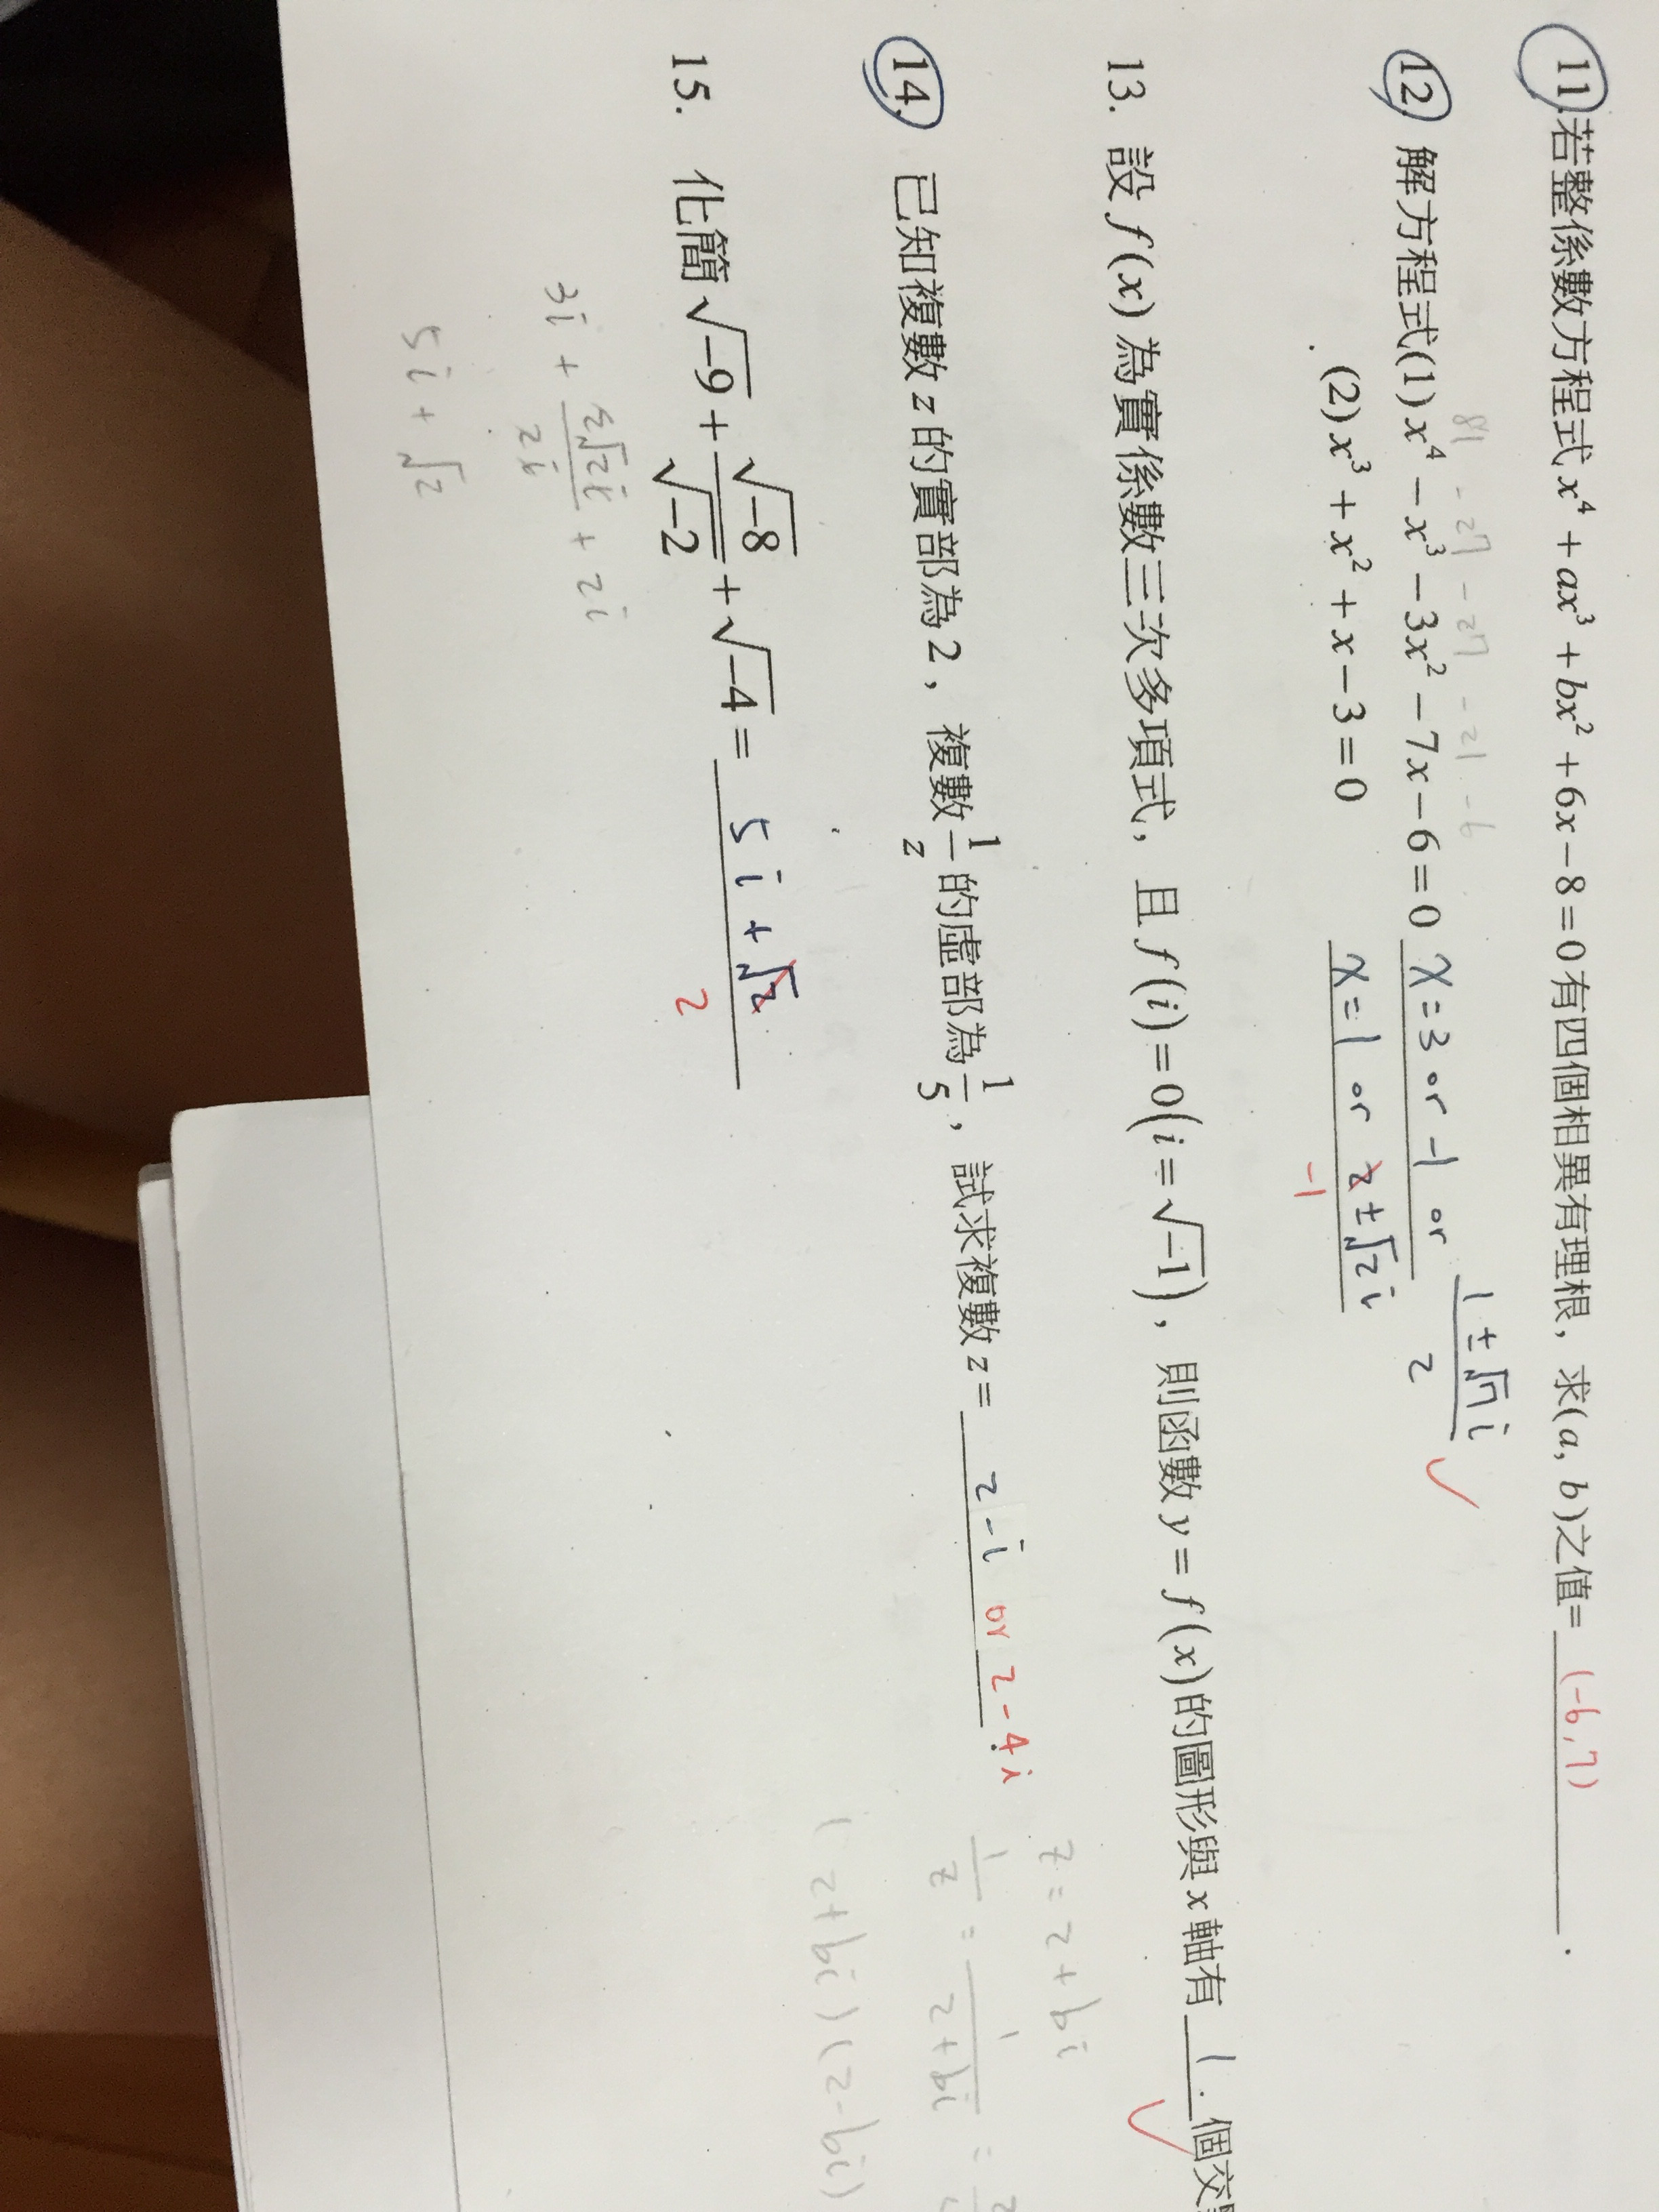 11.若整係數方程式x⁴+ax³+bx²+6x−8=0有四個相異有理根，求(a, b)之值= (-6,7) .
18 - 27 - 27 - 21 - 6
12. 解方程式(1)x⁴−x³−3x²−7x−6=0 x=3 or -1 or (1±√7 i)/2 ✓
(2)x³+x²+x−3=0 x=1 or 2±√2 i
-1
13. 設f(x)為實係數三次多項式，且f(i)=0(i=√−1)，則函數y=f(x)的圖形與x軸有 1 個交 ✓
14. 已知複數z的實部為2，複數1/z的虛部為1/5，試求複數z= 2-i or 2-4i
z=2+bi
1/z = 1/(2+bi) =
(2+bi)(2-bi)
15. 化簡√−9+√−8/√−2+√−4= 5i+√2
2
3i + 2√2i/ + 2i
5i+√2